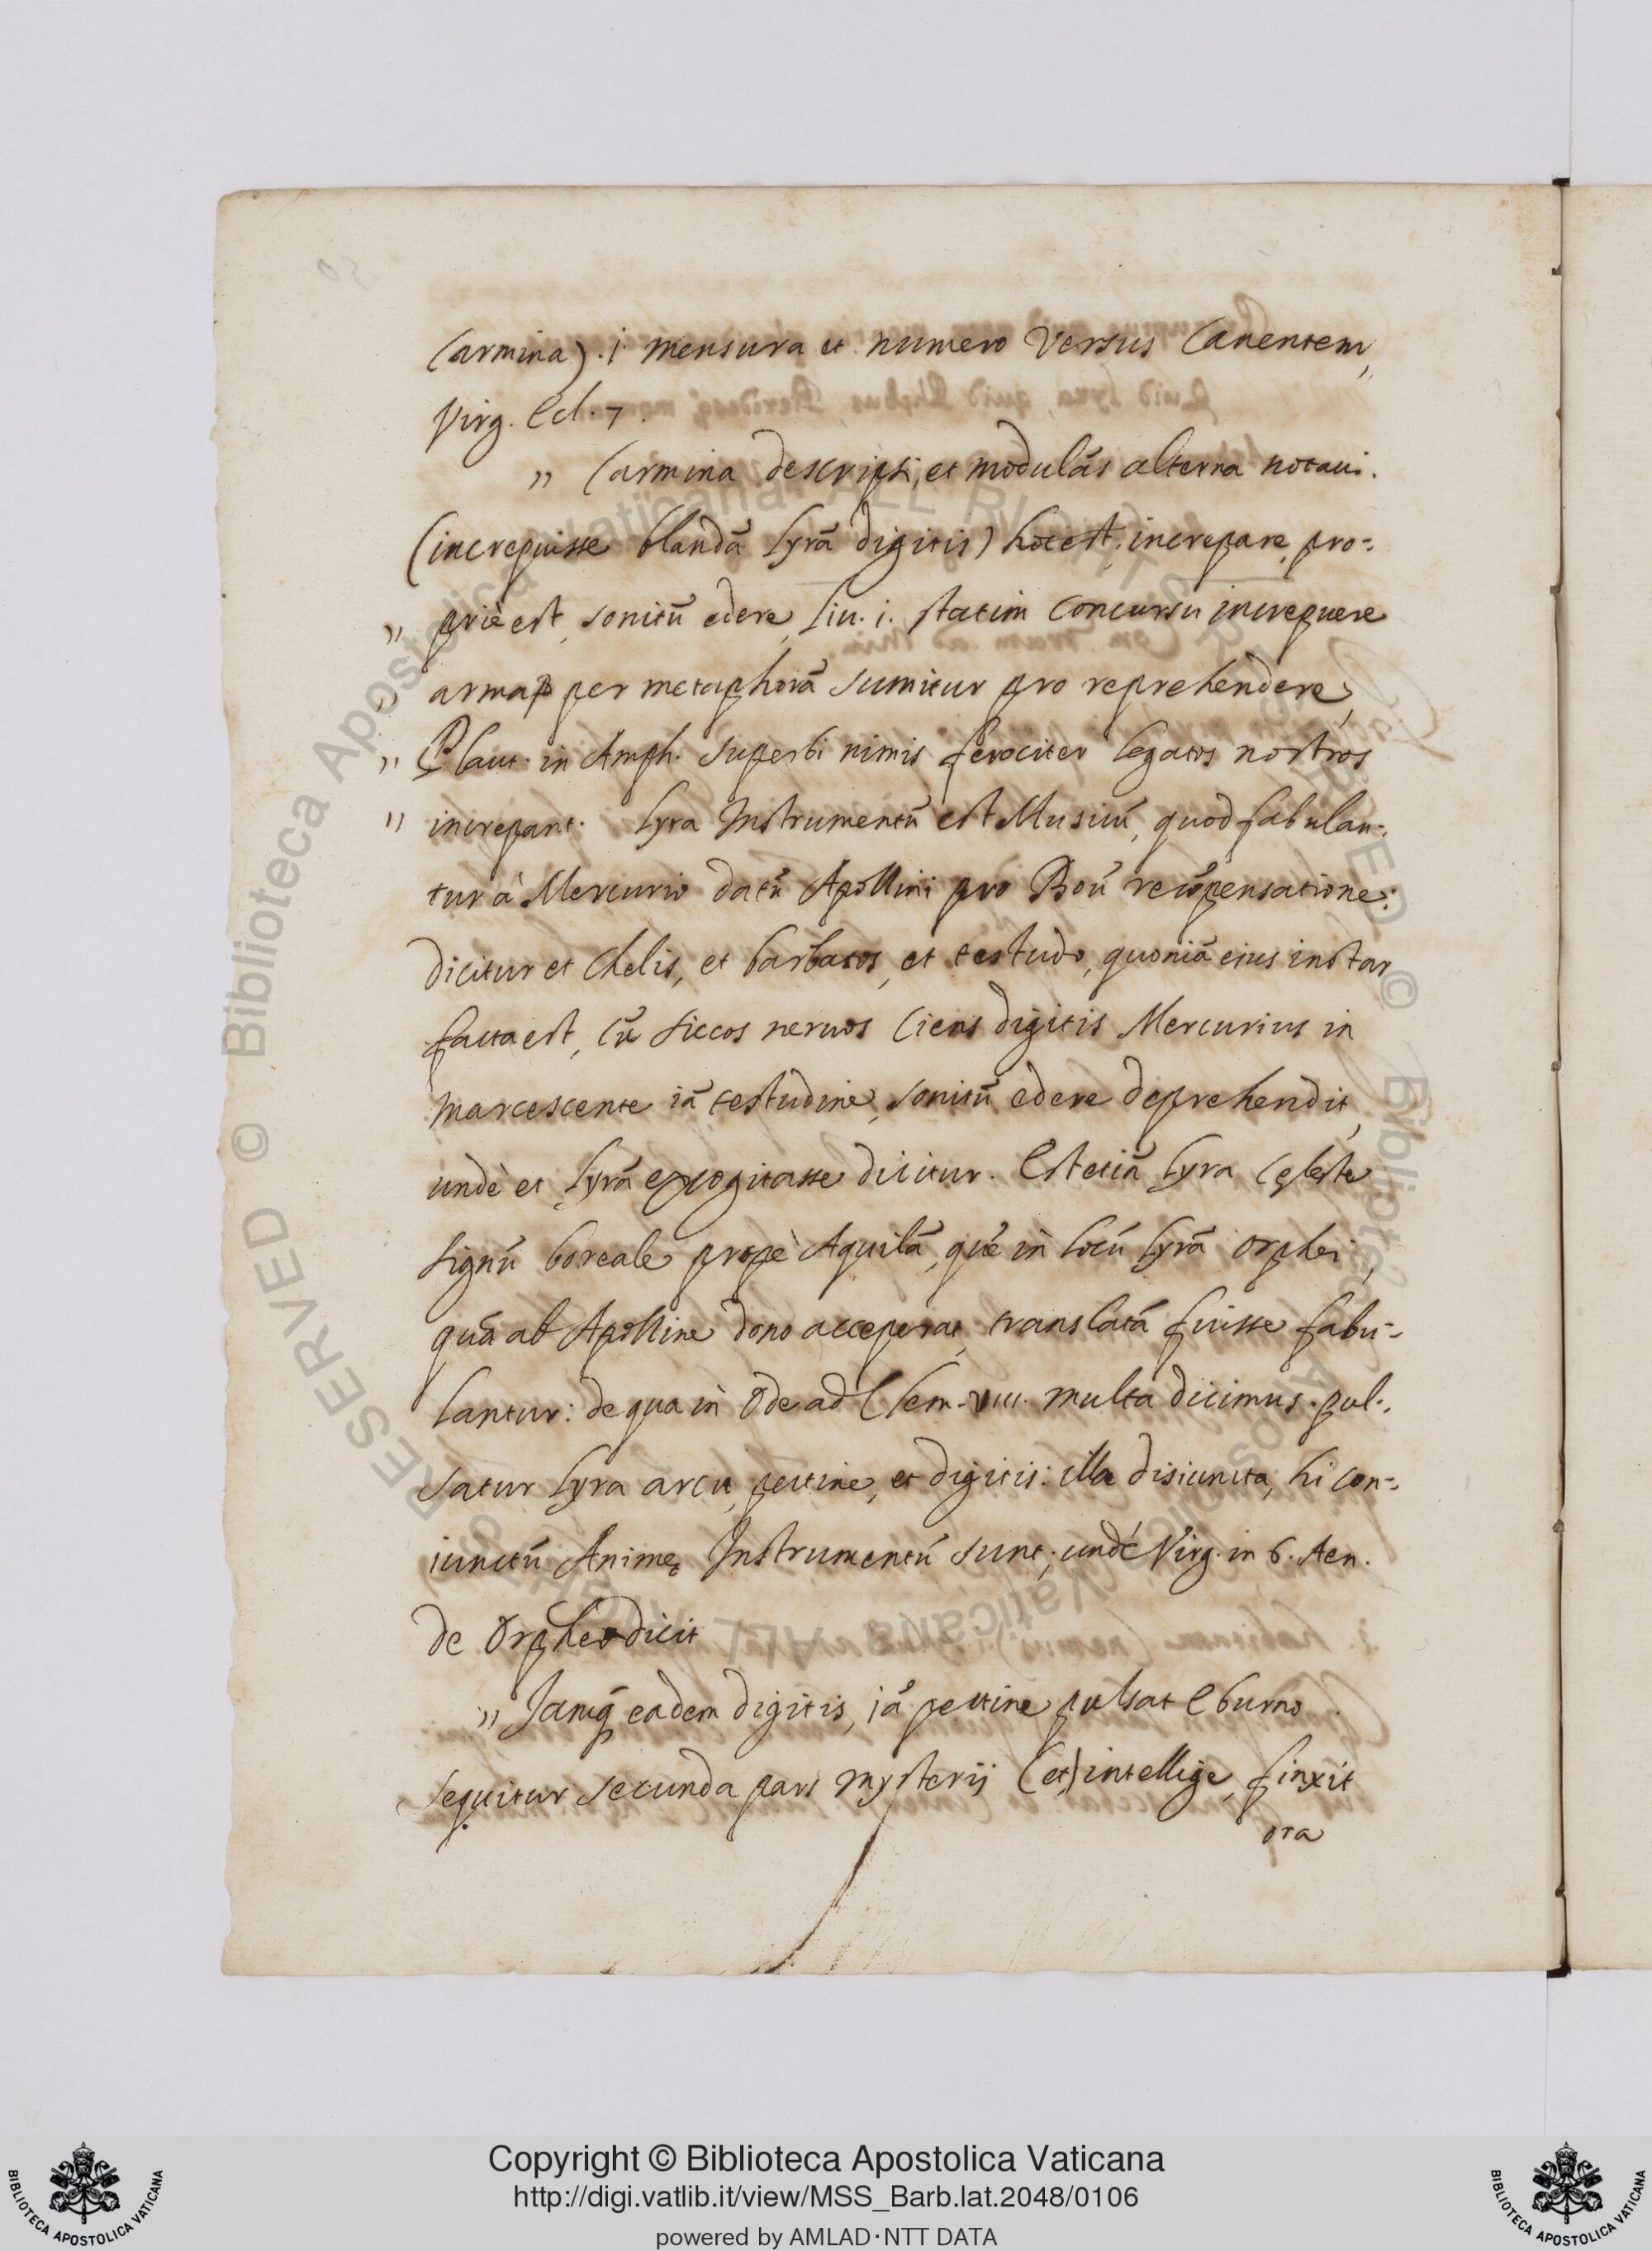 Carmina).i mensura et numero Versus Canentem,
Virg. Ecl. 7.
„ Carmina descripsi, et modulãs alterna notaui.
(increpuisse blandã Lyrã digitis) hoc est, increpare, pro-
„ priè est, sonitũ edere, Liu. i. statim concursu increpuere
arma, per metaphorã sumitur pro reprehendere,
„ Plaut. in Amph. Superbi nimis ferociter legatos nostros
„ increpant. Lyra Instrumentũ est Musicũ, quod fabulan-
tur à Mercurio datũ Apollini pro Boũ recõpensatione:
dicitur et Chelis, et barbatos, et testudo, quoniã eius instar
facta est, Cũ siccos neruos Ciens digitis Mercurius in
marcescente iã testudine, sonitũ edere deprehendit,
undè et Lyrã excogitasse dicitur. Est etiã Lyra Cęleste
signũ boreale propè Aquilã, quẽ in locũ Lyrã Orphei,
quã ab Apolline dono acceperat, translatã fuisse fabu-
lantur: de qua in Ode ad Clem. VIII. multa dicimus. pul-
satur Lyra arcu, pectine, et digitis: illa disiuncta, hi con-
iunctũ Animę Instrumentũ sunt, undè Virg. in 6. Aen.
de Orpheo dicit
„ Jamq̃ eadem digitis, iã pectine pulsat Eburno.
Sequitur secunda pars mysterij (et) intellige, finxit
ora
Copyright © Biblioteca Apostolica Vaticana
http://digi.vatlib.it/view/MSS_Barb.lat.2048/0106
powered by AMLAD·NTT DATA
BIBLIOTECA APOSTOLICA VATICANA
BIBLIOTECA APOSTOLICA VATICANA
© Biblioteca Apostolica Vaticana ALL RIGHTS RESERVED © Biblioteca Apostolica Vaticana ALL RIGHTS RESERVED